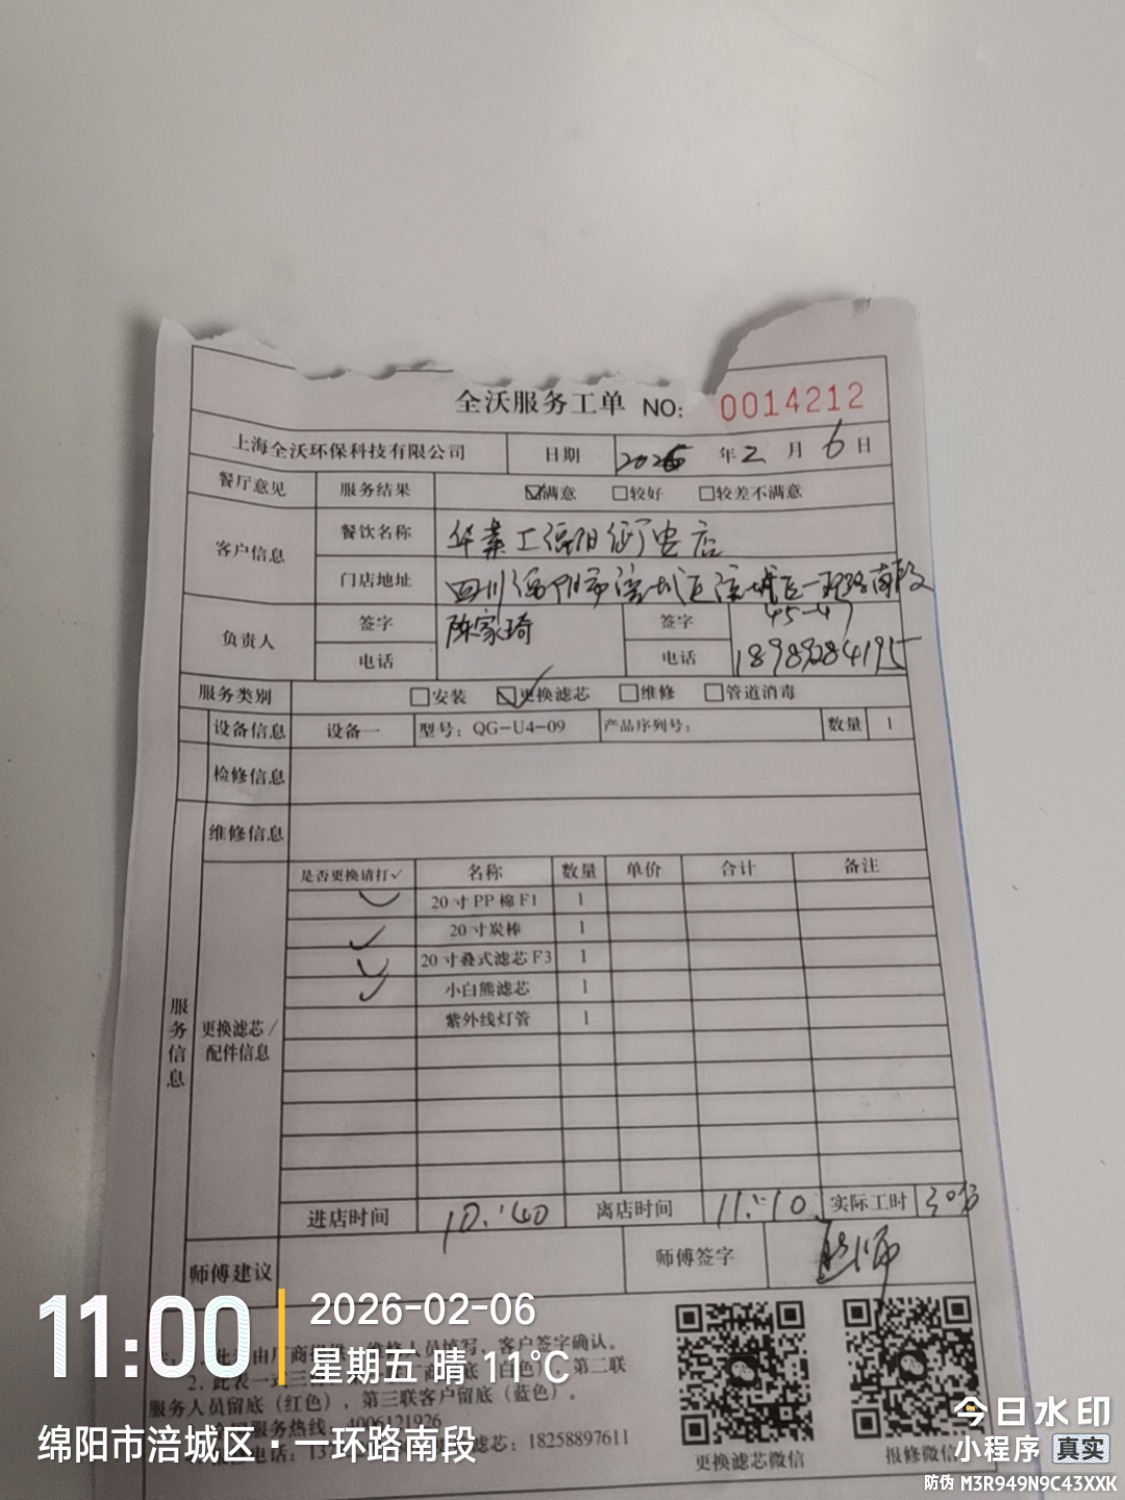 全沃服务工单 NO: 0014212
上海全沃环保科技有限公司 日期 2026 年 2 月 6 日
餐厅意见 服务结果 ☑满意 □较好 □较差不满意
客户信息 餐饮名称 华莱工绵阳 店
门店地址 四川绵阳市涪城区涪城区一环路南段
45-47
负责人 签字 陈家琦 签字
电话 电话 18989284195
服务类别 □安装 ☑更换滤芯 □维修 □管道消毒
设备信息 设备一 型号: QG-U4-09 产品序列号: 数量 1
检修信息
维修信息
是否更换请打✓ 名称 数量 单价 合计 备注
✓ 20寸PP棉F1 1
✓ 20寸炭棒 1
✓ 20寸叠式滤芯F3 1
✓ 小白熊滤芯 1
紫外线灯管 1
服务信息
更换滤芯/
配件信息
进店时间 10:40 离店时间 11:10 实际工时 30分
师傅建议 师傅签字
由厂商 人员填写、客户签字确认。
2. 此表一式三 底(白色)、第二联
服务人员留底(红色),第三联客户留底(蓝色)。
服务热线: 4006121926
电话: 滤芯: 18258897611
更换滤芯微信 报修微信
11:00
2026-02-06
星期五 晴 11°C
绵阳市涪城区·一环路南段
今日水印
小程序 真实
防伪 M3R949N9C43XXK